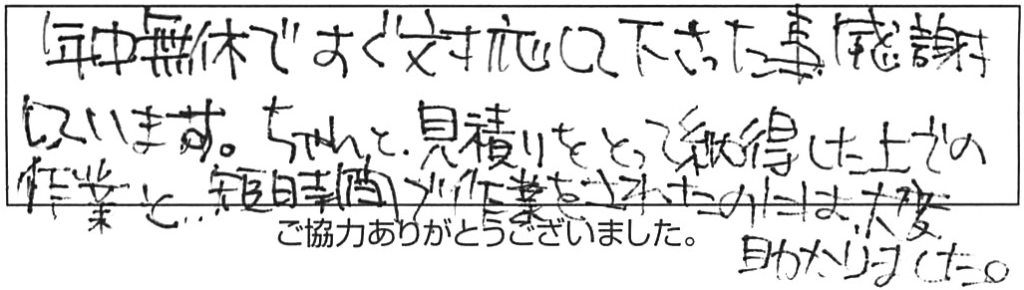 年中無休ですぐ対応して下さった事感謝
しています。ちゃんと、見積りをとって納得した上での
作業と、短時間で作業をされたのには、大変
助かりました。
ご協力ありがとうございました。